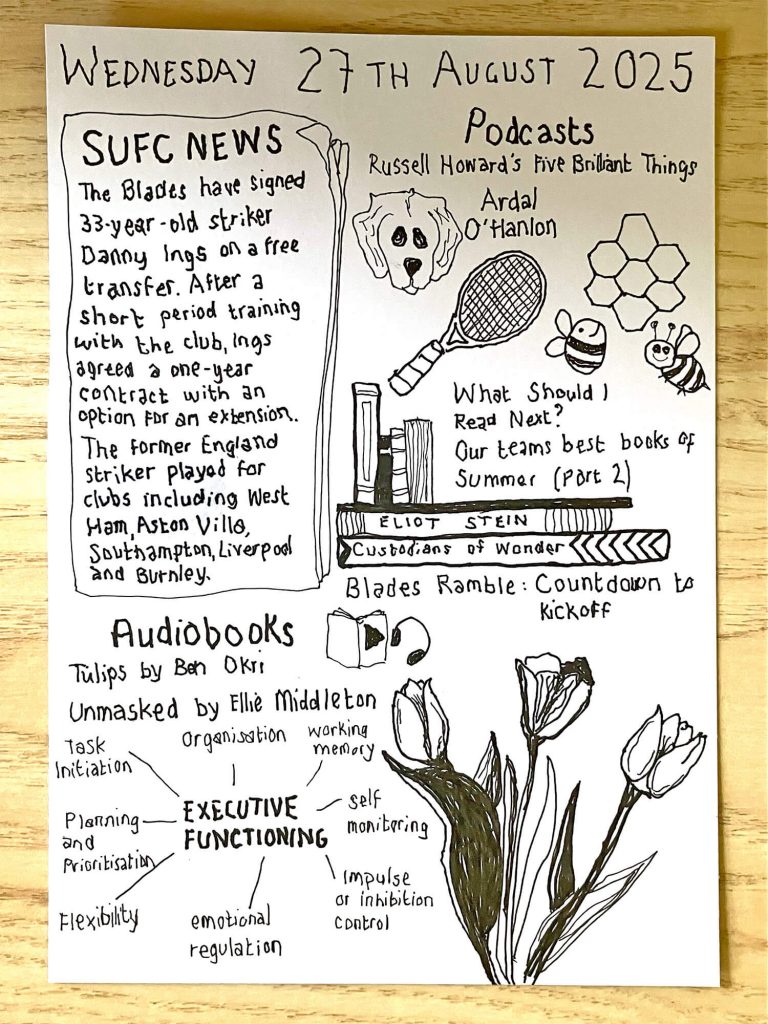 WEDNESDAY 27TH AUGUST 2025
SUFC NEWS
The Blades have signed
33-year-old striker
Danny Ings on a free
transfer. After a
short period training
with the club, Ings
agreed a one-year
contract with an
option for an extension.
The former England
striker played for
clubs including West
Ham, Aston Villa,
Southampton, Liverpool
and Burnley.
Podcasts
Russell Howard's Five Brilliant Things
Ardal
O'Hanlon
What Should I
Read Next?
Our teams best books of
Summer (Part 2)
ELIOT STEIN
Custodians of Wonder
Blades Ramble: Countdown to
kickoff
Audiobooks
Tulips by Ben Okri
Unmasked by Ellie Middleton
EXECUTIVE
FUNCTIONING
Task
Initiation
Organisation
working
memory
Planning
and
Prioritisation
self
monitoring
Flexibility
emotional
regulation
Impulse
or inhibition
control